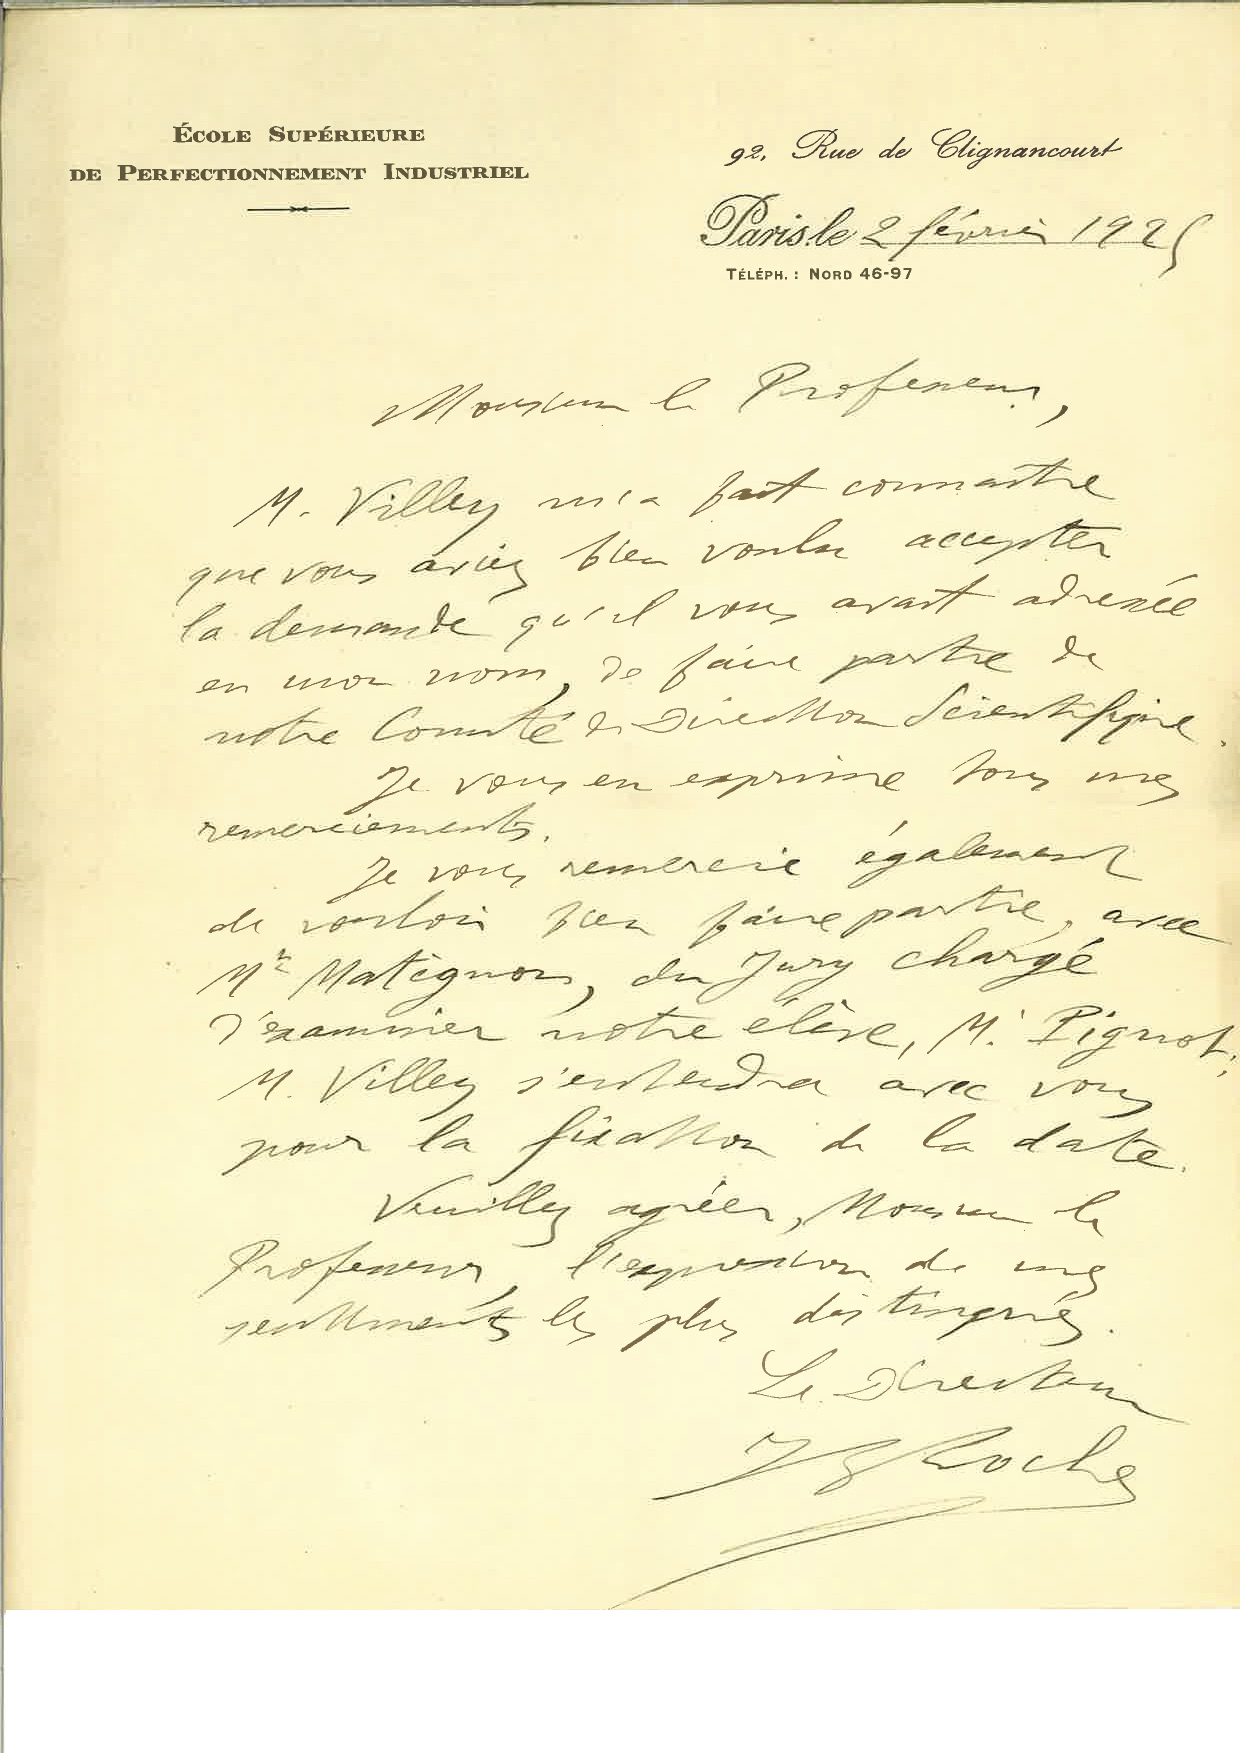 École Supérieure
de Perfectionnement Industriel
92, Rue de Clignancourt
Paris, le 2 février 1925
Téléph. : Nord 46-97
Monsieur le Professeur,
M. Villey m'a fait connaître
que vous aviez bien voulu accepter
la demande qu'il vous avait adressée
en mon nom, de faire partie de
notre Comité de Direction Scientifique.
Je vous en exprime tous mes
remerciements.
Je vous remercie également
de vouloir bien faire partie, avec
Mr Matignon, du Jury chargé
d'examiner notre élève, M. Pignot;
M. Villey s'entendra avec vous
pour la fixation de la date.
Veuillez agréer, Monsieur le
Professeur, l'expression de mes
sentiments les plus distingués.
Le Directeur
Roche